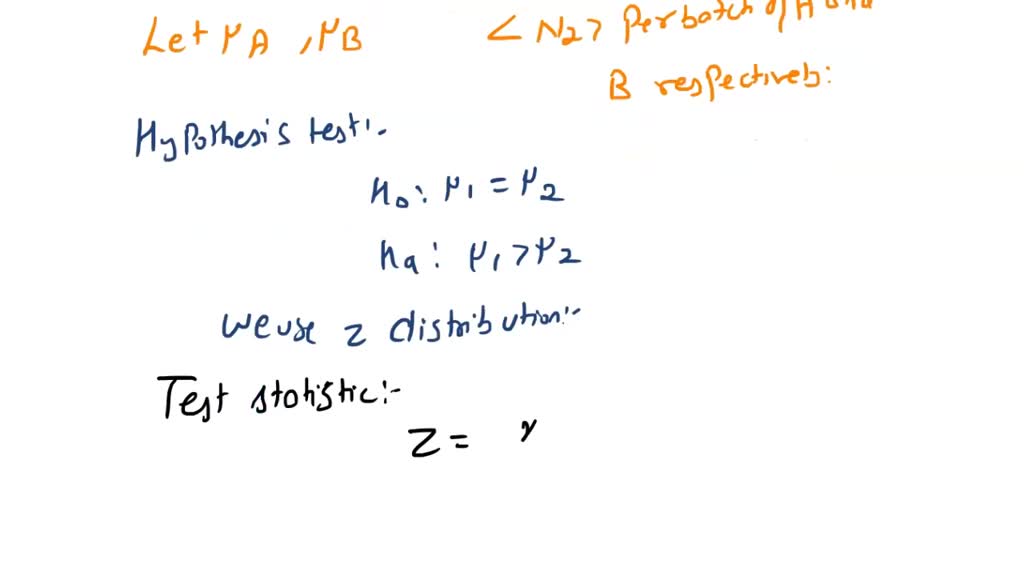 Let μA , μB < N2> Per batch of A and
B respectively:
Hypothesis test:-
H0: μ1 = μ2
Ha: μ1 > μ2
We use z distribution:-
Test statistic:-
Z = x